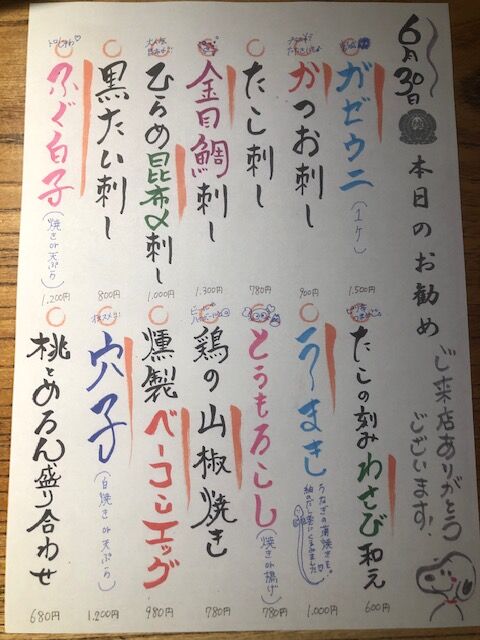 6月30日
本日のお勧め
ご来店ありがとう
ございます。
ガゼウニ
(1ケ)
1.500円
かつお刺し
900円
たこ刺し
780円
金目鯛刺し
1.300円
ひらめ昆布〆刺し
1.000円
黒たい刺し
800円
ふぐ白子
(焼き or 天ぷら)
1.200円
たこの刻みわさび和え
600円
う〜まき
うなぎの蒲焼きを
1.000円
とうもろこし
(焼き or 揚げ)
780円
鶏の山椒焼き
780円
燻製ベーコンエッグ
980円
オススメ!
穴子
(白焼き or 天ぷら)
1.200円
桃とめろん盛り合わせ
680円